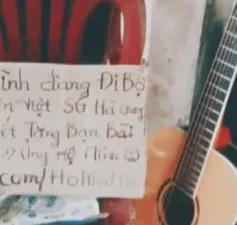 ình đang Đi Bộ
n Việt SG Hà Giang
ết Tặng Bạn Bài
Ủng Hộ Mình
com/HoNhat